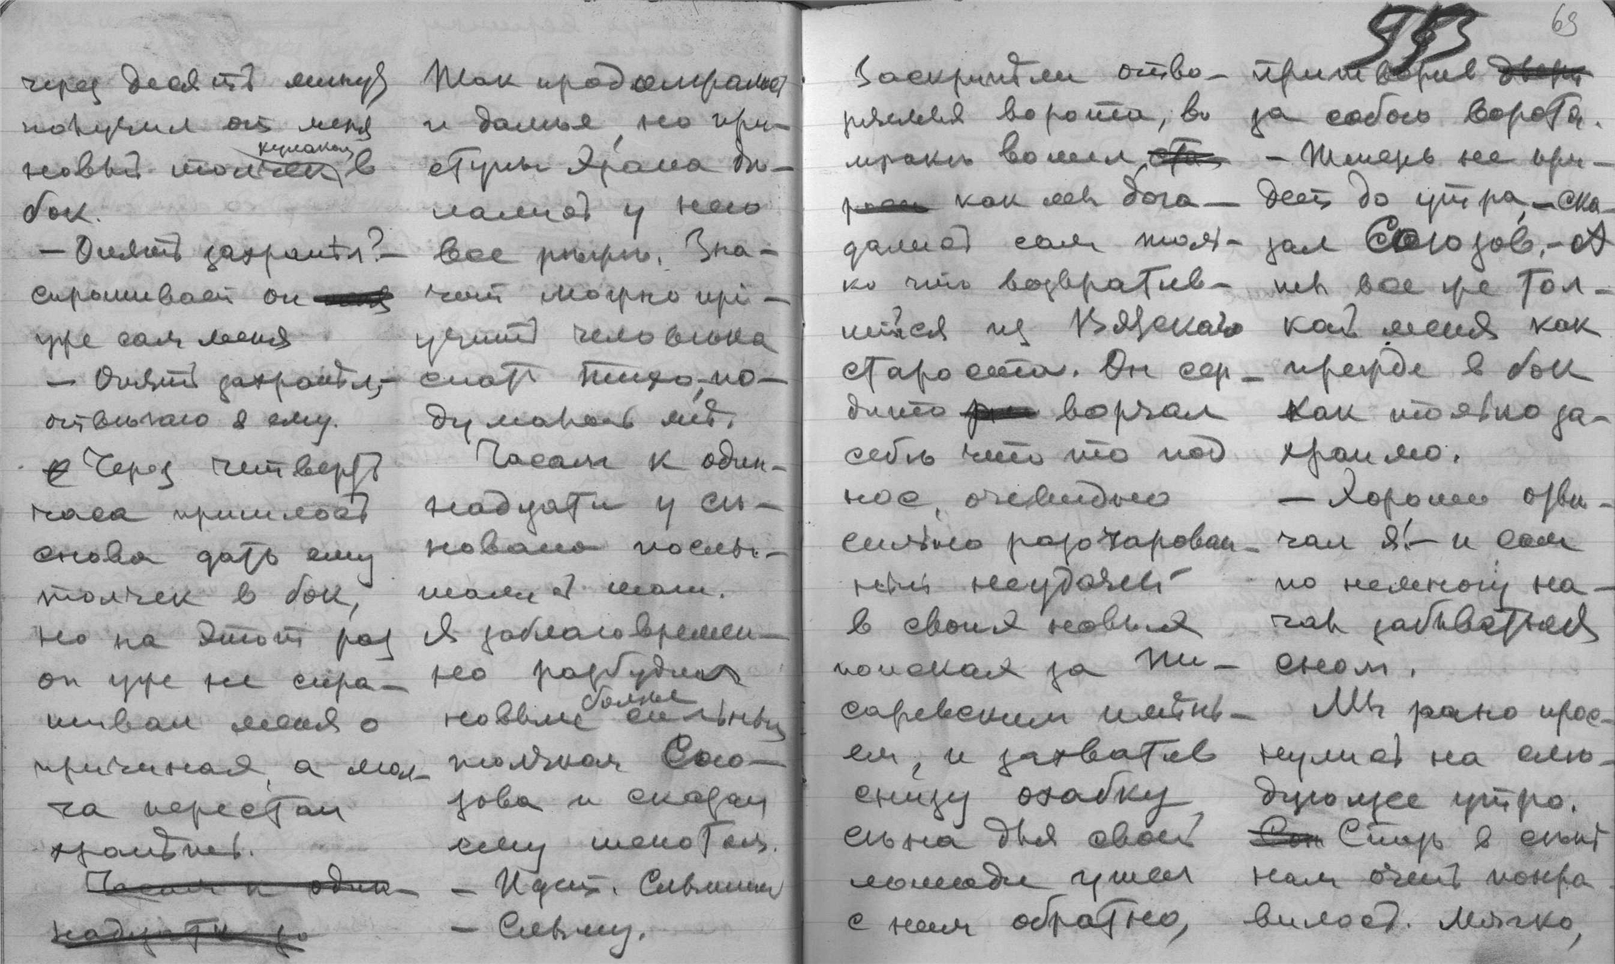 через десять минут
получил от меня
кулаком
новый толчек в
бок.
— Опять захрапел? —
спрашивает он
уже сам меня
— Опять захрапел, —
отвечаю я ему.
Через четверть
часа пришлось
снова дать ему
толчек в бок,
но на этот раз
он уже не спра-
шивал меня о
причинах, а мол-
ча перестал
храпеть.
Часам к один-
надцати
Так продолжалось
и далее, но при-
ступы храпа де-
лались у него
все реже. Зна-
чит можно прі-
учить человека
спать тихо, по-
думалось мне.
Часам к один-
надцати у се-
новала послы-
шались шаги.
Я заблаговремен-
но разбудил
более
новыми сильным
толчком Сою-
зова и сказал
ему шепотом.
— Идет. Слышишь
— Слышу.
63
Заскрипели отво-
ряемыя ворота, во
мраке вошел
как мы дога-
дались сам толь-
ко что возвратив-
шийся из Вязскаго
староста. Он сер-
дито ворчал
себе что то под
нос, очевидно
сильно разочарован-
ный неудачей
в своих новых
поисках за Пи-
саревским имень-
ем, и захватив
снизу охабку
сена для своей
лошади ушел
с ним обратно,
притворив дверь
за собою ворота.
— Теперь не при-
дет до утра, — ска-
зал Союзов. — А
ты все же тол-
кай меня как
прежде в бок
как только за-
храплю.
— Хорошо отве-
чал я! — и сам
по немногу на-
чал забываться
сном.
Мы рано прос-
нулись на сле-
дующее утро.
Спать в сене
нам очень понра-
вилось. Мягко,